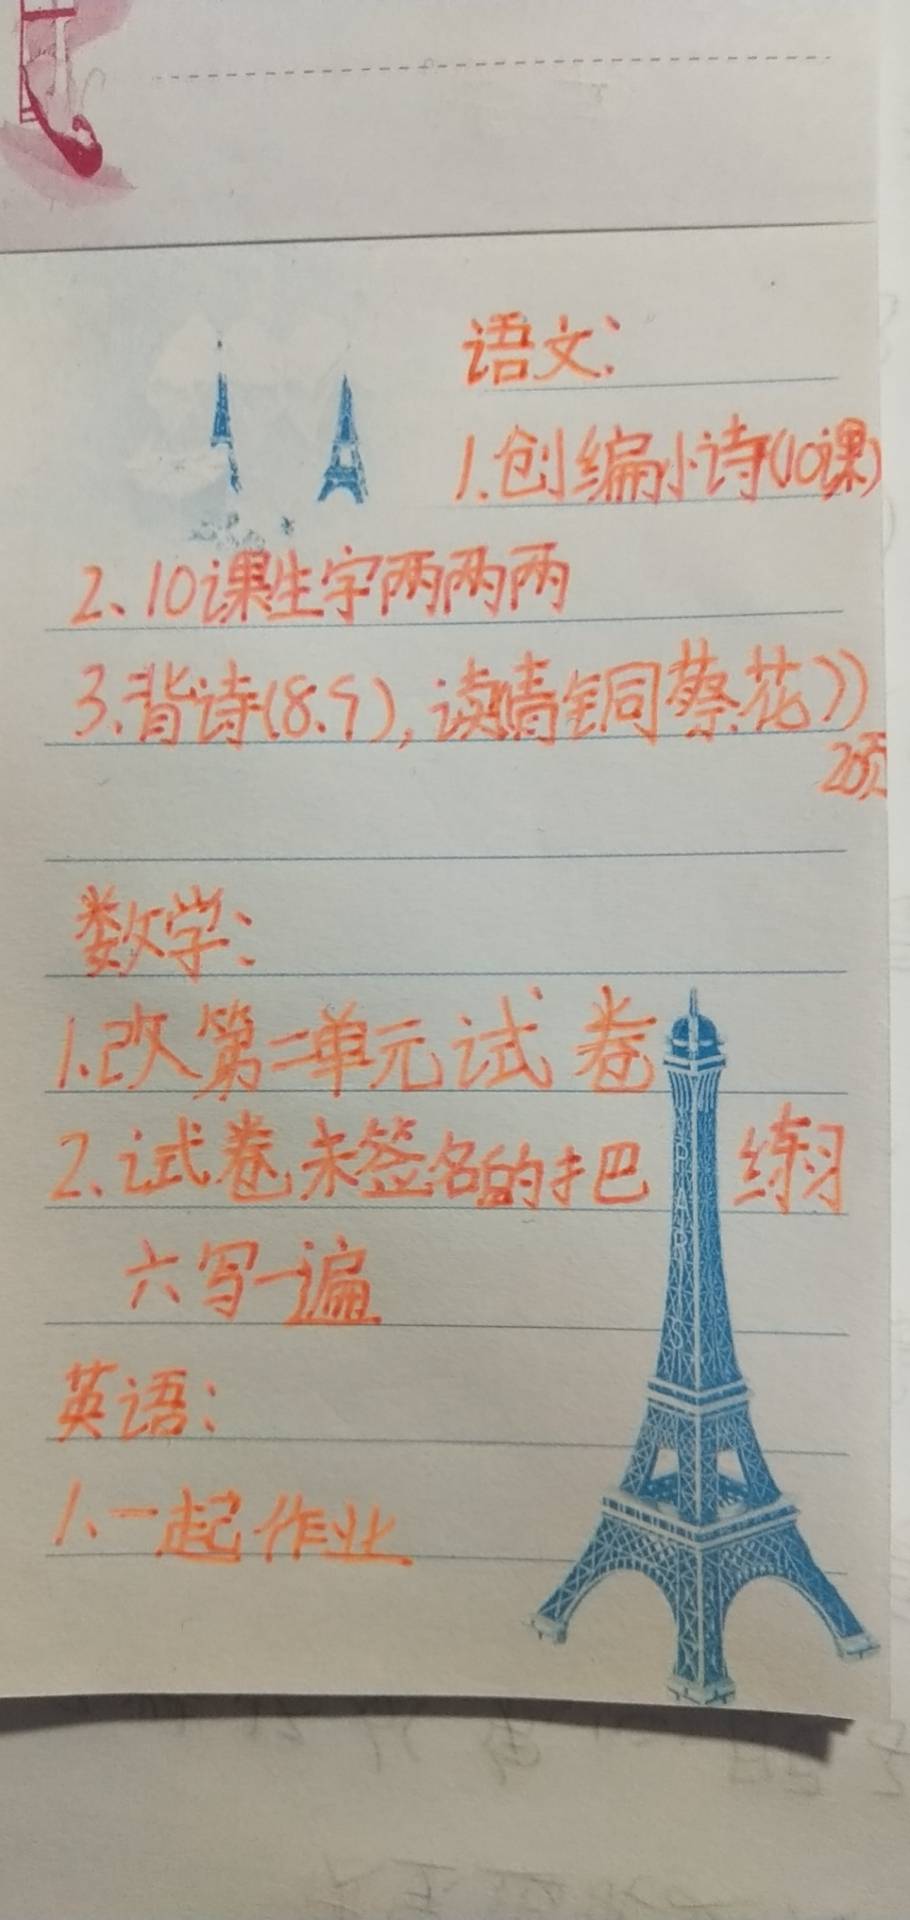 语文：
1.创编小诗(10课)
2、10课生字两两两
3.背诗(8.9),读青铜葵花》
20页
数学：
1.改第二单元试卷
2.试卷未签名的把 练习
六写一遍
英语：
1、一起作业
PARIS